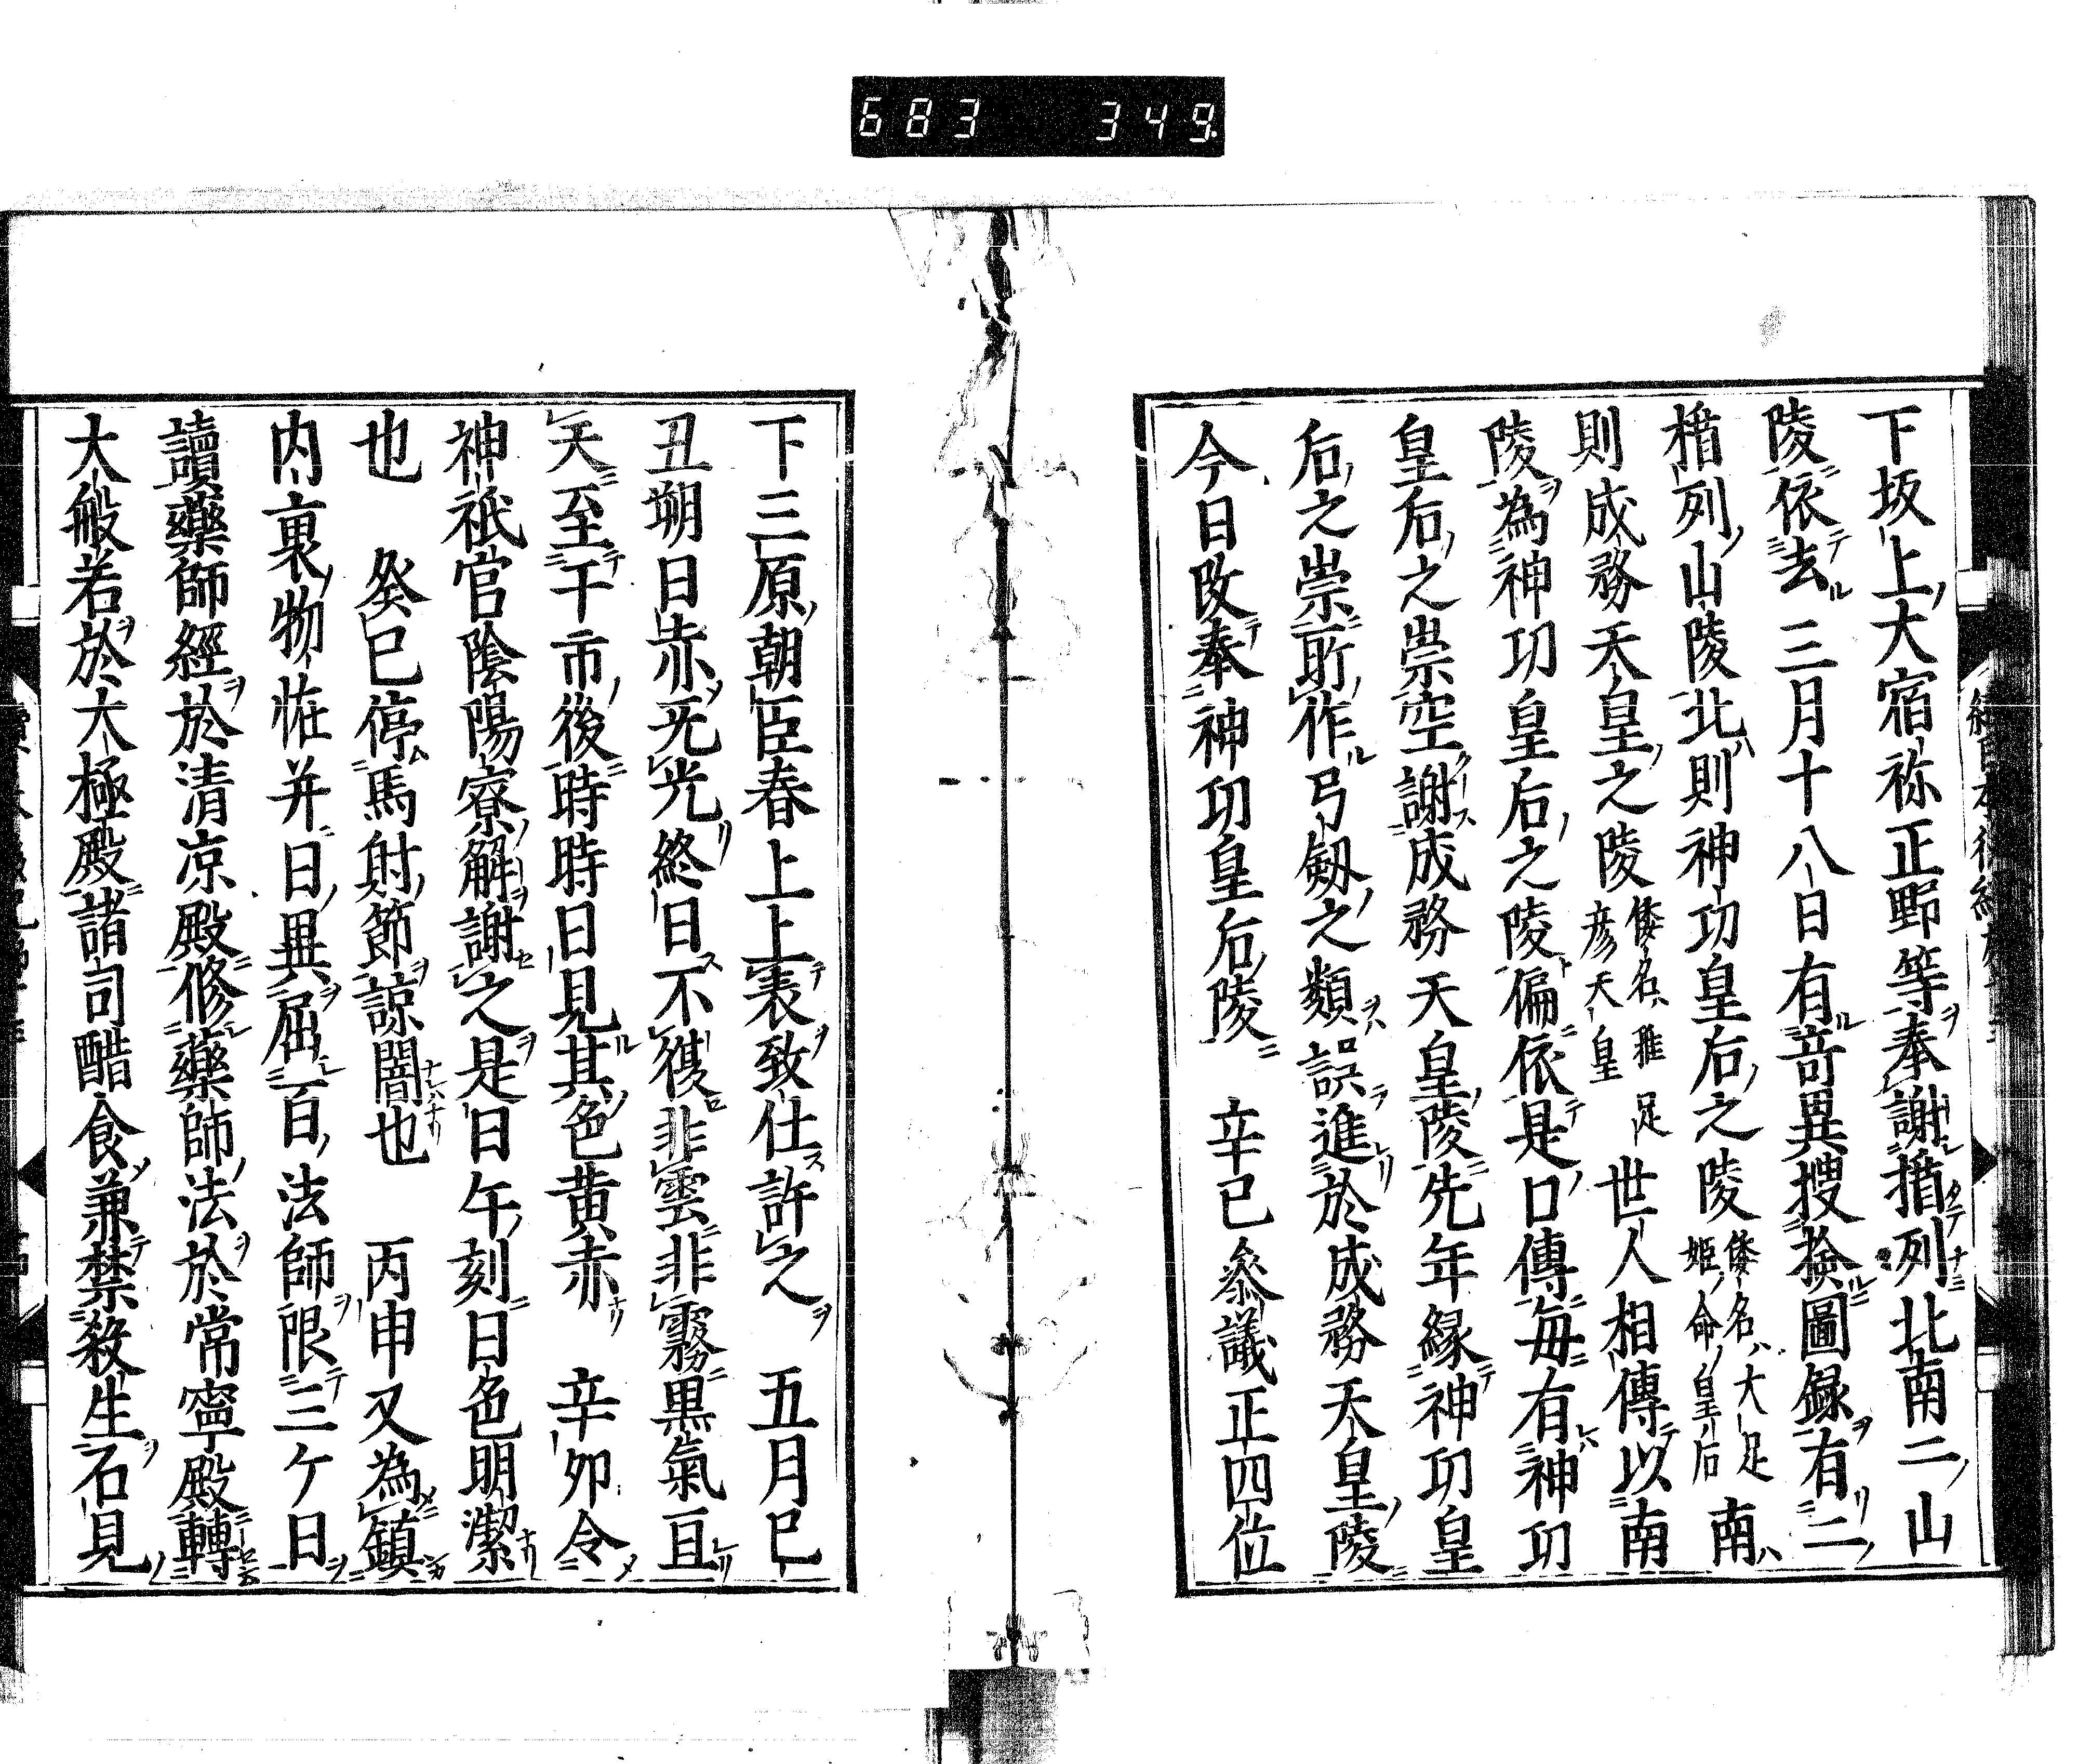 683 349
下坂上大宿祢正野等奉謝揗列北南二山
陵依去三月十八日有竒異搜撿圖録有二
楯列山陵北則神功皇后之陵 倭名大足姫命皇后 南
則成務天皇之陵 倭名稚足彦天皇 世人相傳以南
陵為神功皇后之陵偏依是口傳毎有神功
皇后之祟空謝成務天皇陵先年縁神功皇
后之祟所作弓劔之類誤進於成務天皇陵
今日改奉神功皇后陵 辛巳叅議正四位
下三原朝臣春上上表致仕許之 五月巳
丑朔日赤无光終日不復非雲非霧黒氣亘
天至于市後時時日見其色黄赤 辛夘令
神祇官陰陽寮解謝之是日午刻日色明潔
也 癸巳停馬射節諒闇也 丙申又為鎮
内裏物恠并日異屈百法師限三ケ日
讀藥師經於清凉殿修藥師法於常寧殿轉
大般若於大極殿諸司醋食兼禁殺生石見